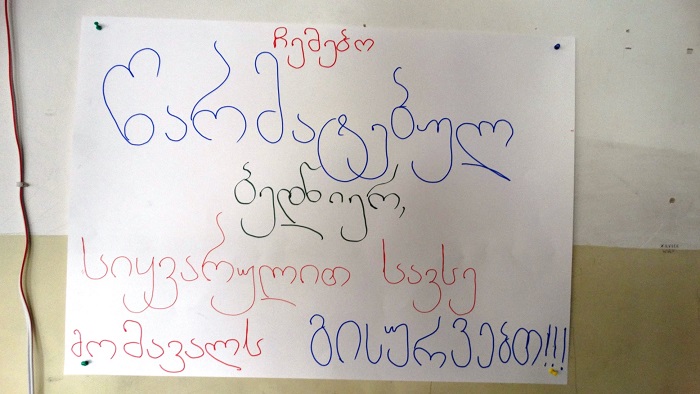 ჩემებო
წარმატებულ
ბედნიერ,
სიყვარულით სავსე
მომავალს გისურვებთ!!!